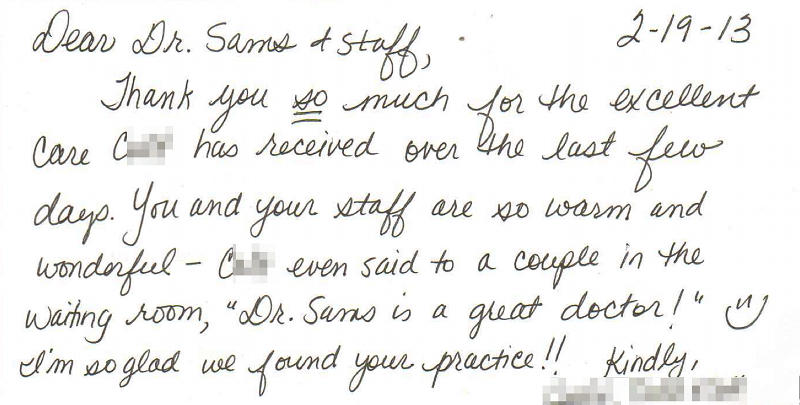 Dear Dr. Sams + staff, 2-19-13
Thank you so much for the excellent
care C has received over the last few
days. You and your staff are so warm and
wonderful - C even said to a couple in the
waiting room, "Dr. Sams is a great doctor!" :)
I'm so glad we found your practice!! Kindly,